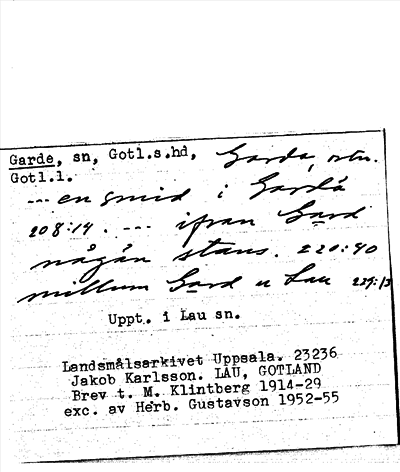 Garde, sn, Gotl.s.hd, Garda, ortn.
Gotl.l.
--- en smid i Gardå
208:14. --- ifran Gard
någån stans. 220:40
millum Gard u Lau 229:13
Uppt. i Lau sn.
Landsmålsarkivet Uppsala. 23236
Jakob Karlsson. LAU, GOTLAND
Brev t. M. Klintberg 1914-29
exc. av Herb. Gustavson 1952-55